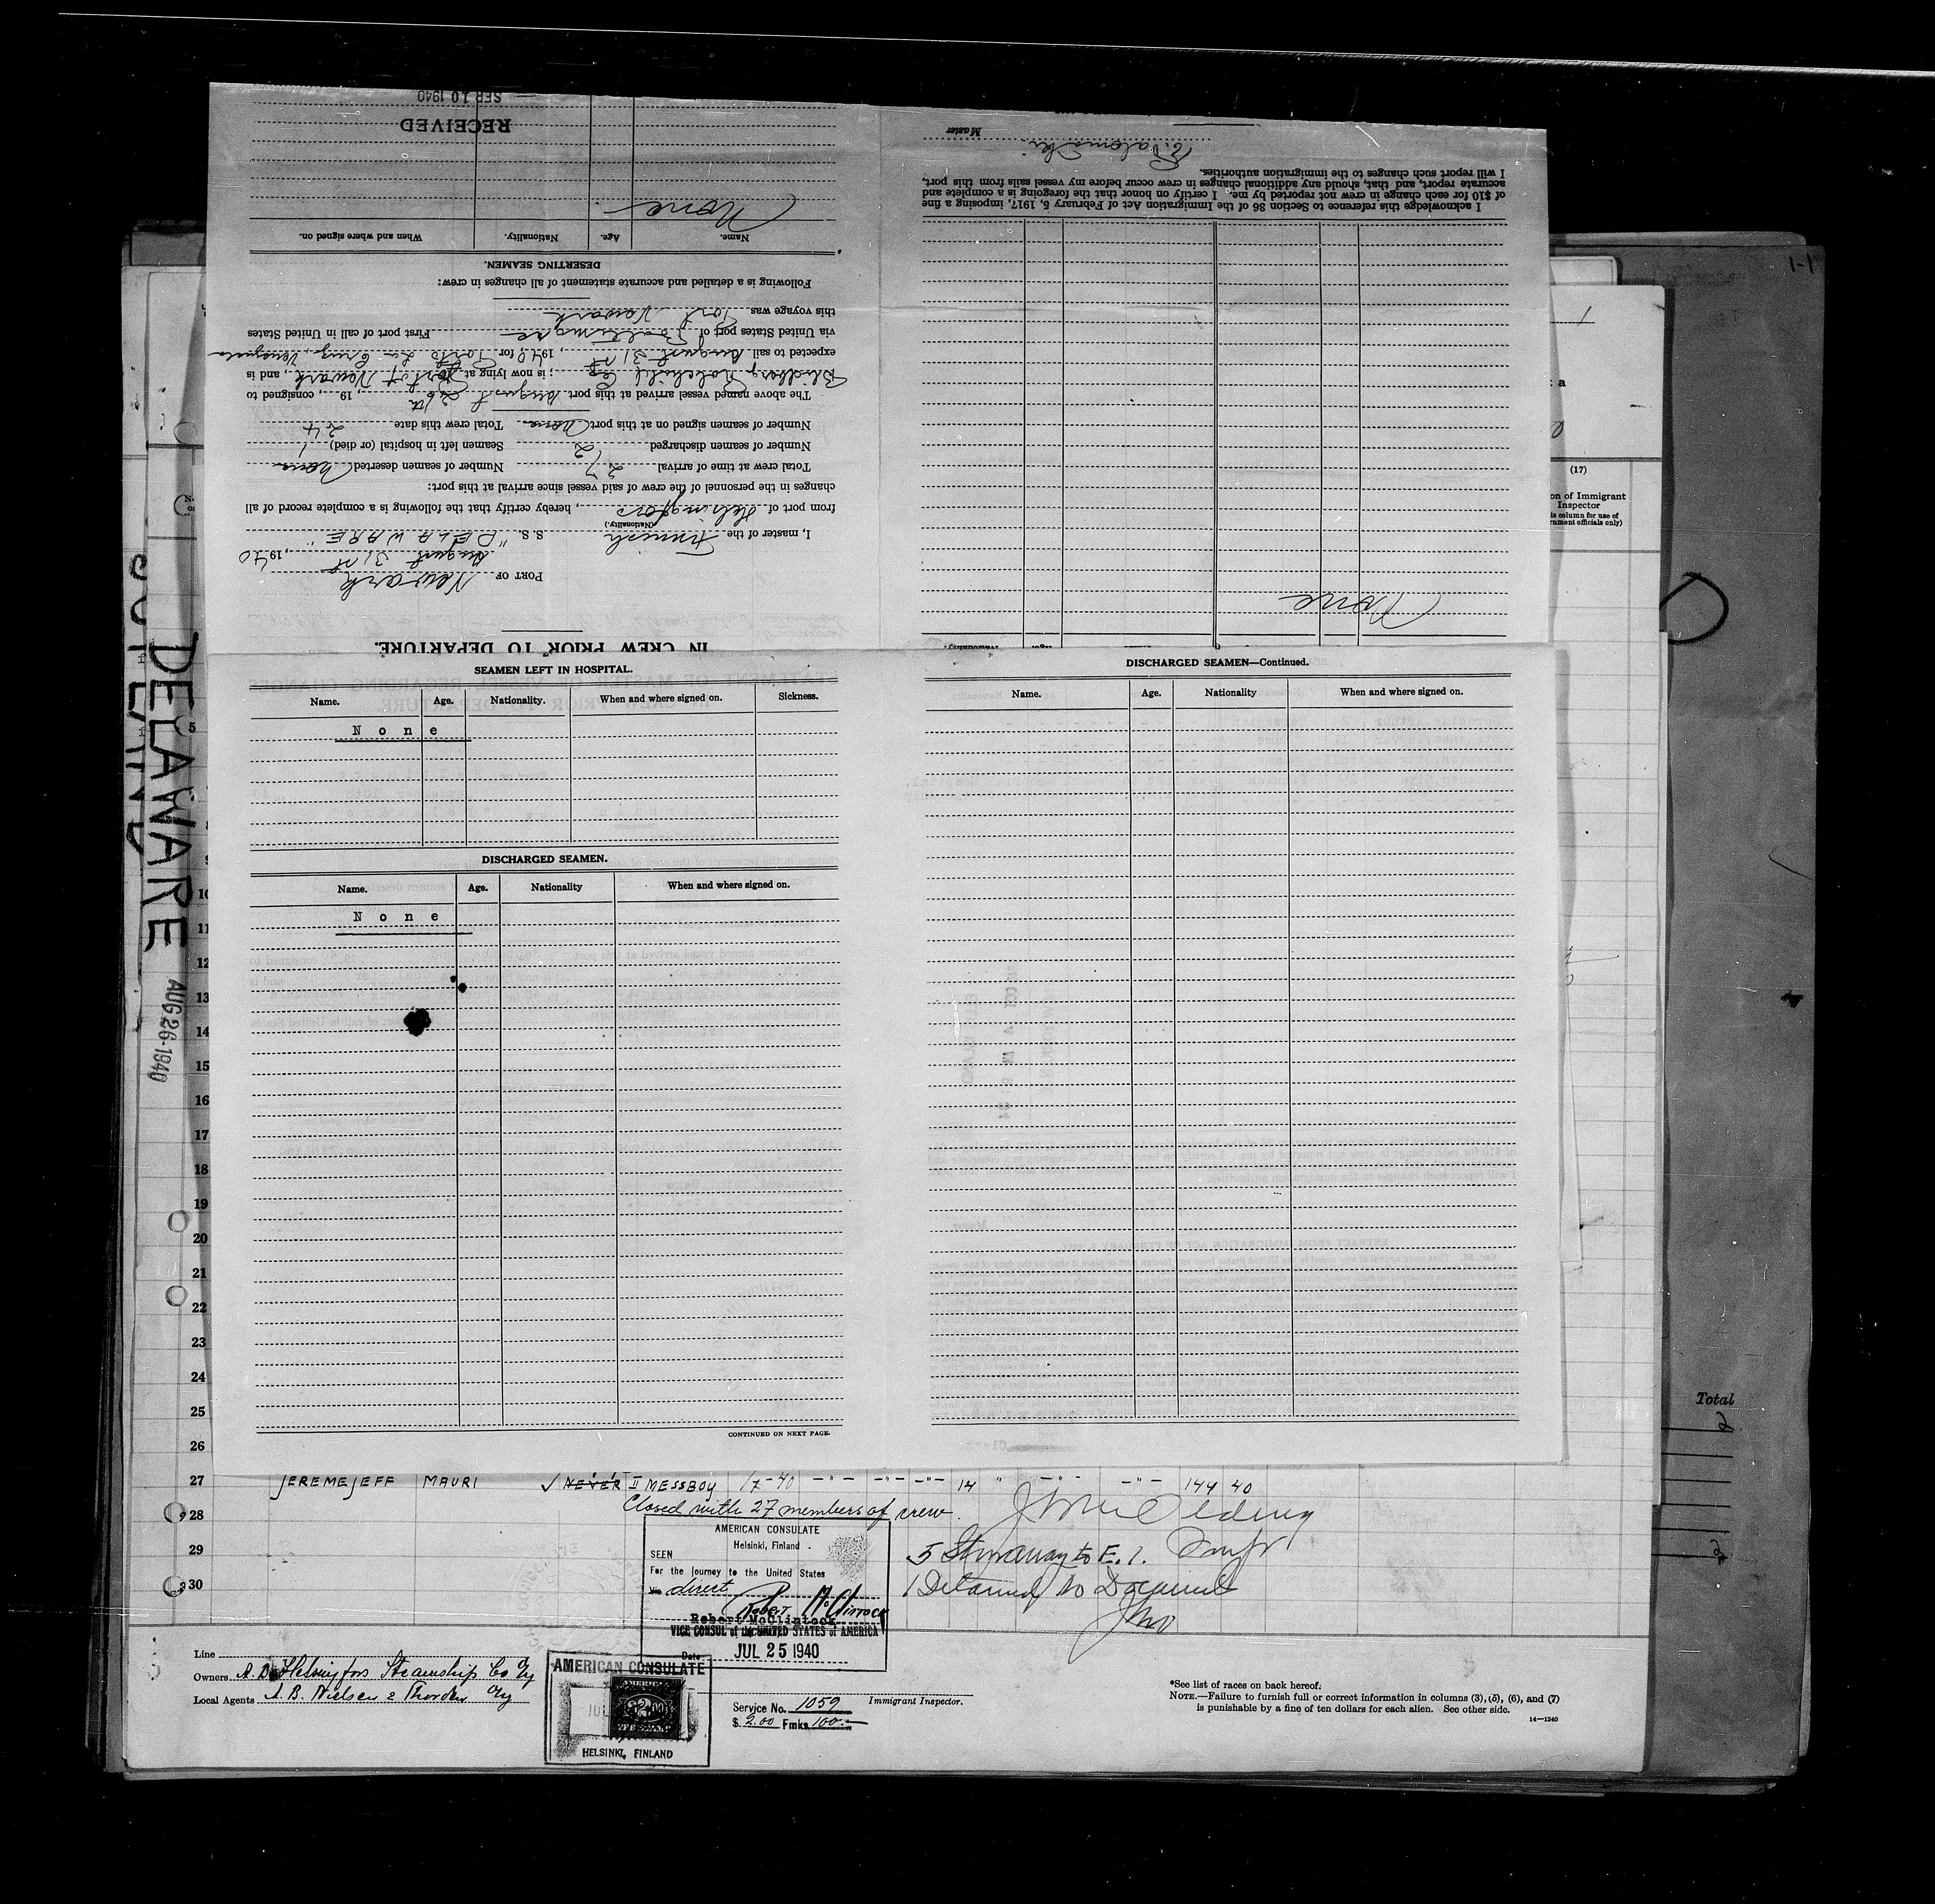 SEP 10 1940
RECEIVED
None
Name. Age. Nationality. When and where signed on.
DESERTING SEAMEN.
Following is a detailed and accurate statement of all changes in crew:
this voyage was Port Newark
via United States port of Baltimore First port of call in United States
expected to sail August 31st, 1940, for Puerto La Cruz, Venezuela
Blidberg, Rothchild Co; is now lying at Port of Newark, and is
The above named vessel arrived at this port August 26th, 19 , consigned to
Number of seamen signed on at this port None Total crew this date 24
Number of seamen discharged 2 Seamen left in hospital (or died) 1
Total crew at time of arrival 27 Number of seamen deserted None
changes in the personnel of the crew of said vessel since arrival at this port:
from port of Helsingfors, hereby certify that the following is a complete record of all
(Nationality.)
I, master of the Finnish S. S. "DELAWARE"
August 31st, 1940
PORT OF Newark
IN CREW PRIOR TO DEPARTURE.
Master
I will report such changes to the immigration authorities.
accurate report, and that, should any additional changes in crew occur before my vessel sails from this port,
of $10 for each change in crew not reported by me. I certify on honor that the foregoing is a complete and
I acknowledge this reference to Section 36 of the Immigration Act of February 5, 1917, imposing a fine
None
1-1
1
a
(17)
on of Immigrant
Inspector
is column for use of
rnment officials only)
SEAMEN LEFT IN HOSPITAL.
Name. Age. Nationality. When and where signed on. Sickness.
None
DISCHARGED SEAMEN.
Name. Age. Nationality When and where signed on.
None
CONTINUED ON NEXT PAGE.
DISCHARGED SEAMEN—Continued.
Name. Age. Nationality When and where signed on.
DELAWARE
AUG 26 1940
5
9
10
11
12
13
14
15
16
17
18
19
20
21
22
23
24
25
26
27 JEREMEJEFF MAURI ✓ NEVER II MESSBOY 17-40 -"- -"- -"- 14 " -"- -"- 144 40
Closed with 27 members of crew.
28
29 5 Stowaway to E. I.
30 1 Detained No Document
AMERICAN CONSULATE
Helsinki, Finland
SEEN
For the journey to the United States
Via direct
Robert McClintock
Robert McClintock
VICE CONSUL of the UNITED STATES of AMERICA
Date JUL 25 1940
Total
2
2
Line
Owners A. B. Helsingfors Steamship Co O/y
Local Agents A. B. Nielsen & Thorden O/y
AMERICAN CONSULATE
JUL
$2.00
HELSINKI, FINLAND
Service No. 1059
$ 2.00 Fmks 100.—
Immigrant Inspector.
*See list of races on back hereof.
NOTE.—Failure to furnish full or correct information in columns (3), (5), (6), and (7)
is punishable by a fine of ten dollars for each alien. See other side.
14—1240